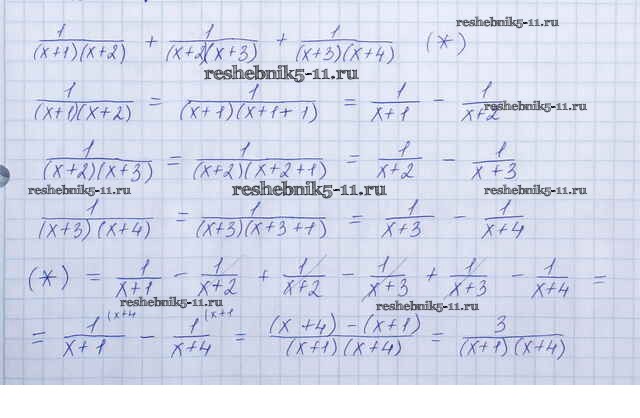 reshebnik5-11.ru
1/((x+1)(x+2)) + 1/((x+2)(x+3)) + 1/((x+3)(x+4)) (*)
reshebnik5-11.ru
1/((x+1)(x+2)) = 1/((x+1)(x+1+1)) = 1/(x+1) - 1/(x+2)
reshebnik5-11.ru
1/((x+2)(x+3)) = 1/((x+2)(x+2+1)) = 1/(x+2) - 1/(x+3)
reshebnik5-11.ru reshebnik5-11.ru reshebnik5-11.ru
1/((x+3)(x+4)) = 1/((x+3)(x+3+1)) = 1/(x+3) - 1/(x+4)
(*) = 1/(x+1) - 1/(x+2) + 1/(x+2) - 1/(x+3) + 1/(x+3) - 1/(x+4) =
reshebnik5-11.ru reshebnik5-11.ru
= 1/(x+1) (x+4 - 1/(x+4) (x+1 = ((x+4)-(x+1))/((x+1)(x+4)) = 3/((x+1)(x+4))